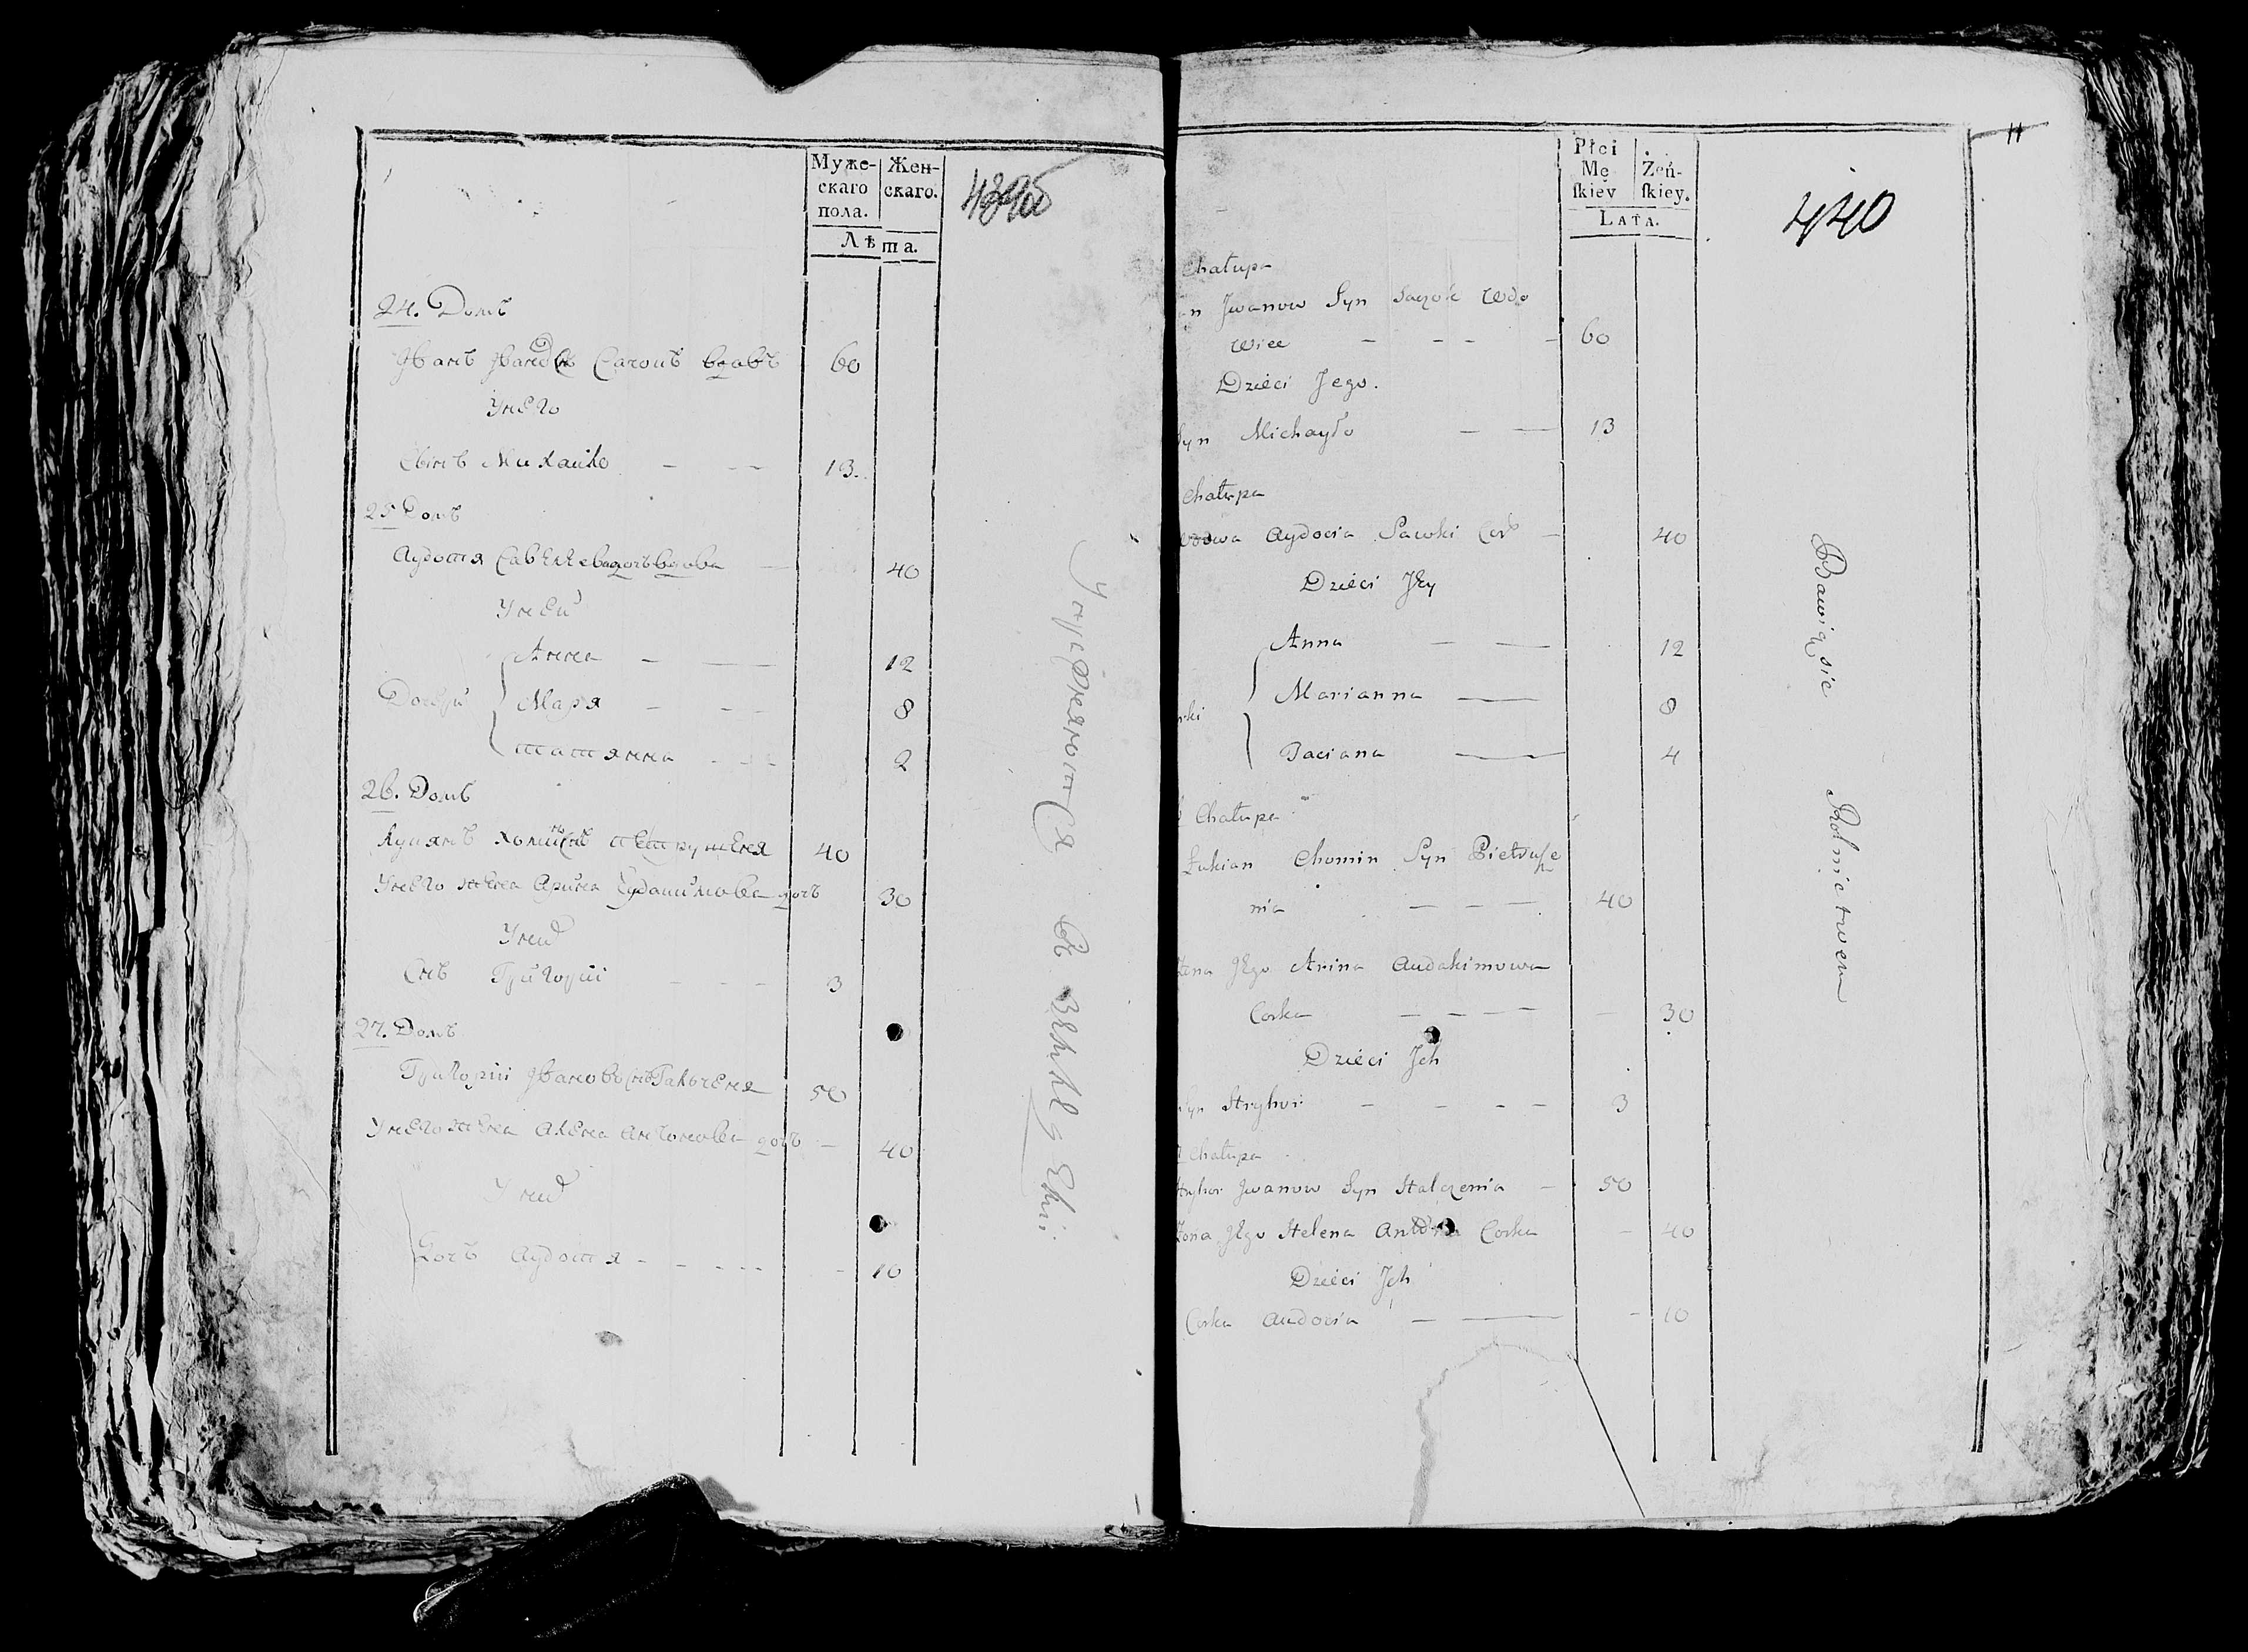 Муже-
скаго
пола.
Жен-
скаго.
Лѣта.
24. Домъ
Иванъ Ивановъ Сачокъ вдавъ 60
У него
Сынъ Михайло - - - 13.
25 Домъ
Аудотя Савелева дочь вдова - 40
У неи
Анна - - 12
Дочери Марья - - - 8
Татянна - - - 2
26. Домъ
Лукянъ Хоминъ снъ Петрушеня 40
У него жена Арина Еудакимова дочь 30
У них
Снъ Григорiй - - - 3
27. Домъ
Григорiй Ивановъ снъ Галченя 50
У него жена Алена Антонова дочь - 40
У них
Дочь Аудотя - - - - - 10
Упражняются въ
Płci
Mę
ſkiey
Żeń-
ſkiey.
LATA.
11
440
Chałupa
Jwanow Syn Saczok Wdo
wiec - - - - 60
Dzieci Jego.
Syn Michayło - - 13
Chałupa
wdowa Aydocia Sawki Cor - 40
Dzieci Jey
Anna - - 12
Marianna - 8
rki
Taciana - 4
Chałupa
Łukian Chomin Syn Pietrusze
nia - - - 40
Żona Jego Arina Audakimowa
Corka - - - - - 30
Dzieci Jch
Syn Hryhor - - - - 3
Chałupa
Hryhor Jwanow Syn Halczenia - 50
Żona Jego Helena Corka - 40
Dzieci Jch
Corka Audocia - - - 10
Bawią się Rolnictwem